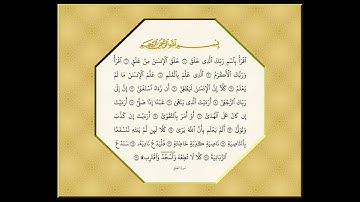 بِسْمِ ٱللَّهِ ٱلرَّحْمَٰنِ ٱلرَّحِيمِ
ٱقْرَأْ بِٱسْمِ رَبِّكَ ٱلَّذِى خَلَقَ ١ خَلَقَ ٱلْإِنسَٰنَ مِنْ عَلَقٍ ٢ ٱقْرَأْ
وَرَبُّكَ ٱلْأَكْرَمُ ٣ ٱلَّذِى عَلَّمَ بِٱلْقَلَمِ ٤ عَلَّمَ ٱلْإِنسَٰنَ مَا لَمْ
يَعْلَمْ ٥ كَلَّآ إِنَّ ٱلْإِنسَٰنَ لَيَطْغَىٰٓ ٦ أَن رَّءَاهُ ٱسْتَغْنَىٰٓ ٧ إِنَّ إِلَىٰ
رَبِّكَ ٱلرُّجْعَىٰٓ ٨ أَرَءَيْتَ ٱلَّذِى يَنْهَىٰ ٩ عَبْدًا إِذَا صَلَّىٰٓ ١٠ أَرَءَيْتَ
إِن كَانَ عَلَى ٱلْهُدَىٰٓ ١١ أَوْ أَمَرَ بِٱلتَّقْوَىٰٓ ١٢ أَرَءَيْتَ إِن كَذَّبَ
وَتَوَلَّىٰٓ ١٣ أَلَمْ يَعْلَم بِأَنَّ ٱللَّهَ يَرَىٰ ١٤ كَلَّا لَئِن لَّمْ يَنتَهِ لَنَسْفَعًۢا
بِٱلنَّاصِيَةِ ١٥ نَاصِيَةٍ كَٰذِبَةٍ خَاطِئَةٍ ١٦ فَلْيَدْعُ نَادِيَهُۥ ١٧ سَنَدْعُ
ٱلزَّبَانِيَةَ ١٨ كَلَّا لَا تُطِعْهُ وَٱسْجُدْ وَٱقْتَرِب ۩ ١٩
سورة العلق